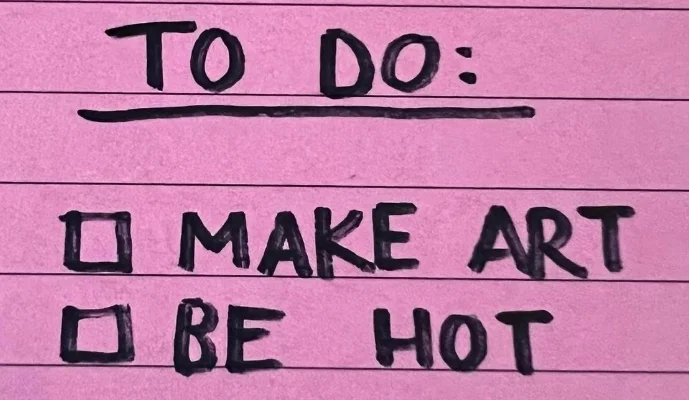 TO DO:
☐ MAKE ART
☐ BE HOT